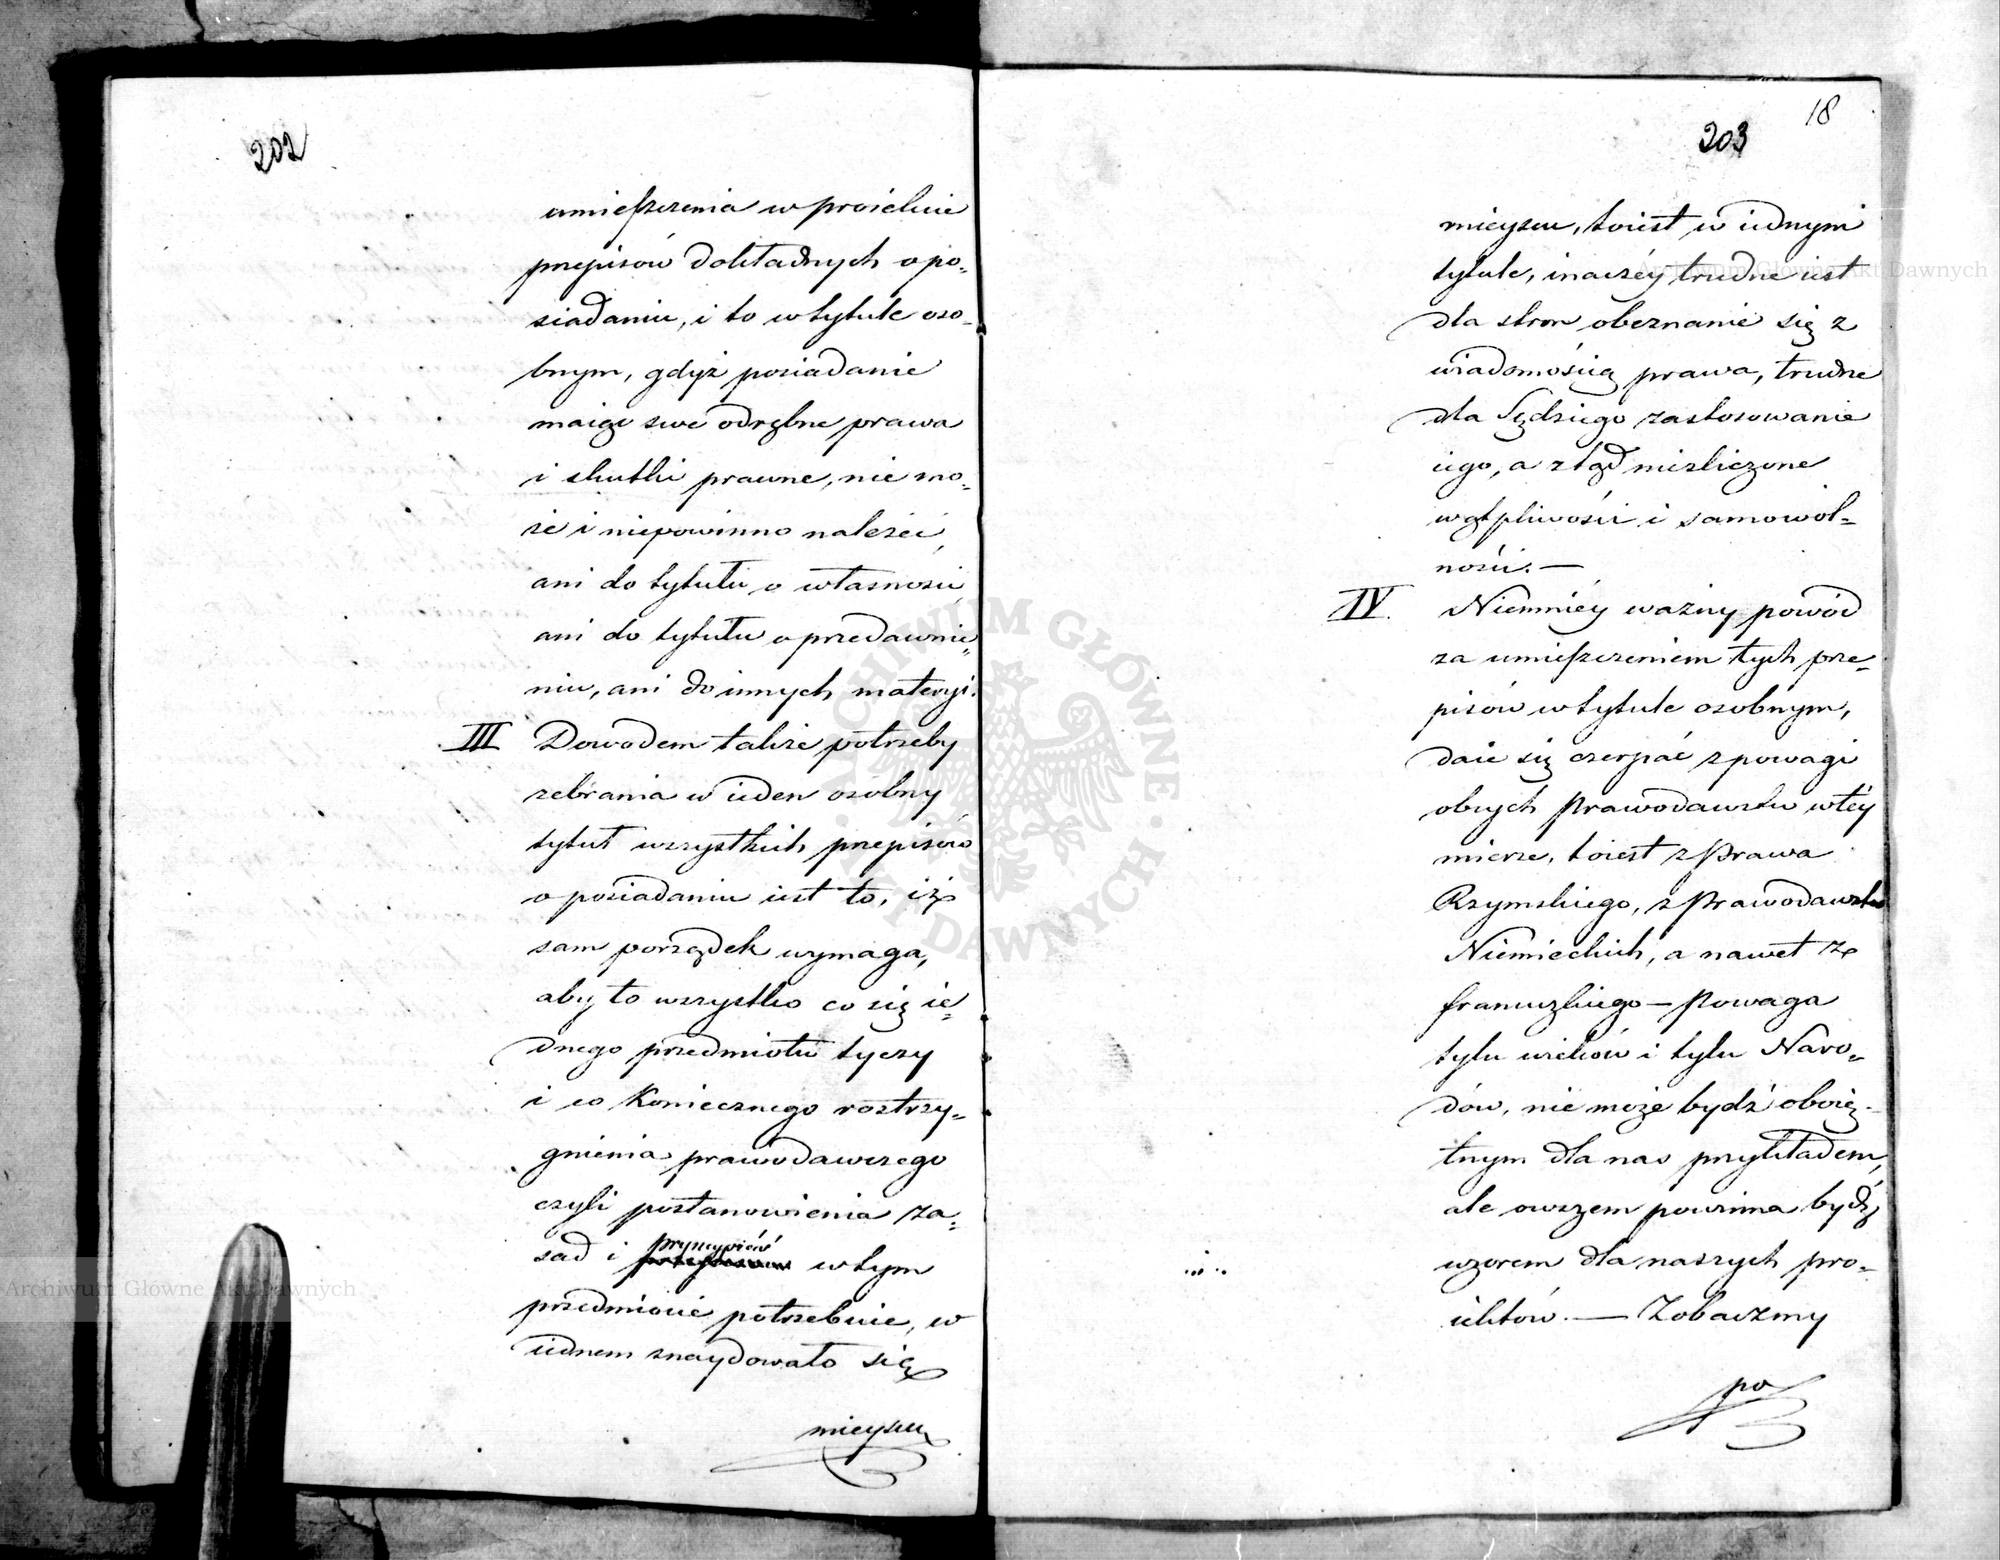 202
umieszczenia w proiekcie
przepisów dokładnych o po=
siadaniu, i to w tytule oso=
bnym, gdyż posiadanie
maiąc swe odrębne prawa
i skutki prawne, nie mo=
że i niepowinno należeć
ani do tytułu o własności
ani do tytułu o przedawnie=
niu, ani do innych materyi.
III Dowodem także potrzeby
zebrania w ieden osobny
tytuł wszystkich przepisów
o posiadaniu iest to, iż
sam porządek wymaga,
aby to wszystko co się ie=
dnego przedmiotu tyczy
i co koniecznego roztrzy=
gnienia prawodawczego
czyli postanowienia za=
sad i pryncypiów w tym
przedmiocie potrzebuie, w
iednem znaydowało się
mieyscu
18
203
mieyscu, toiest w iednym
tytule, inaczéy trudne iest
dla stron obeznanie się z
wiadomością prawa, trudne
dla Sędziego zastosowanie
iego, a ztąd niezliczone
wątpliwości i samowol=
ności. —
IV. Niemniéy ważny powód
za umieszczeniem tych prze=
pisów w tytule osobnym,
daie się czerpać z powagi
obcych Prawodawstw w téy
mierze, toiest z Prawa
Rzymskiego, z Prawodawstw
Niemieckich, a nawet z
francuzkiego — Powaga
tylu wieków i tylu Naro=
dów, nie może bydź oboię=
tnym dla nas przykładem,
ale owszem powinna bydź
wzorem dla naszych pro=
iektów. — Zobaczmy
po
Archiwum Główne Akt Dawnych
Archiwum Główne Akt Dawnych
ARCHIWUM GŁÓWNE AKT DAWNYCH